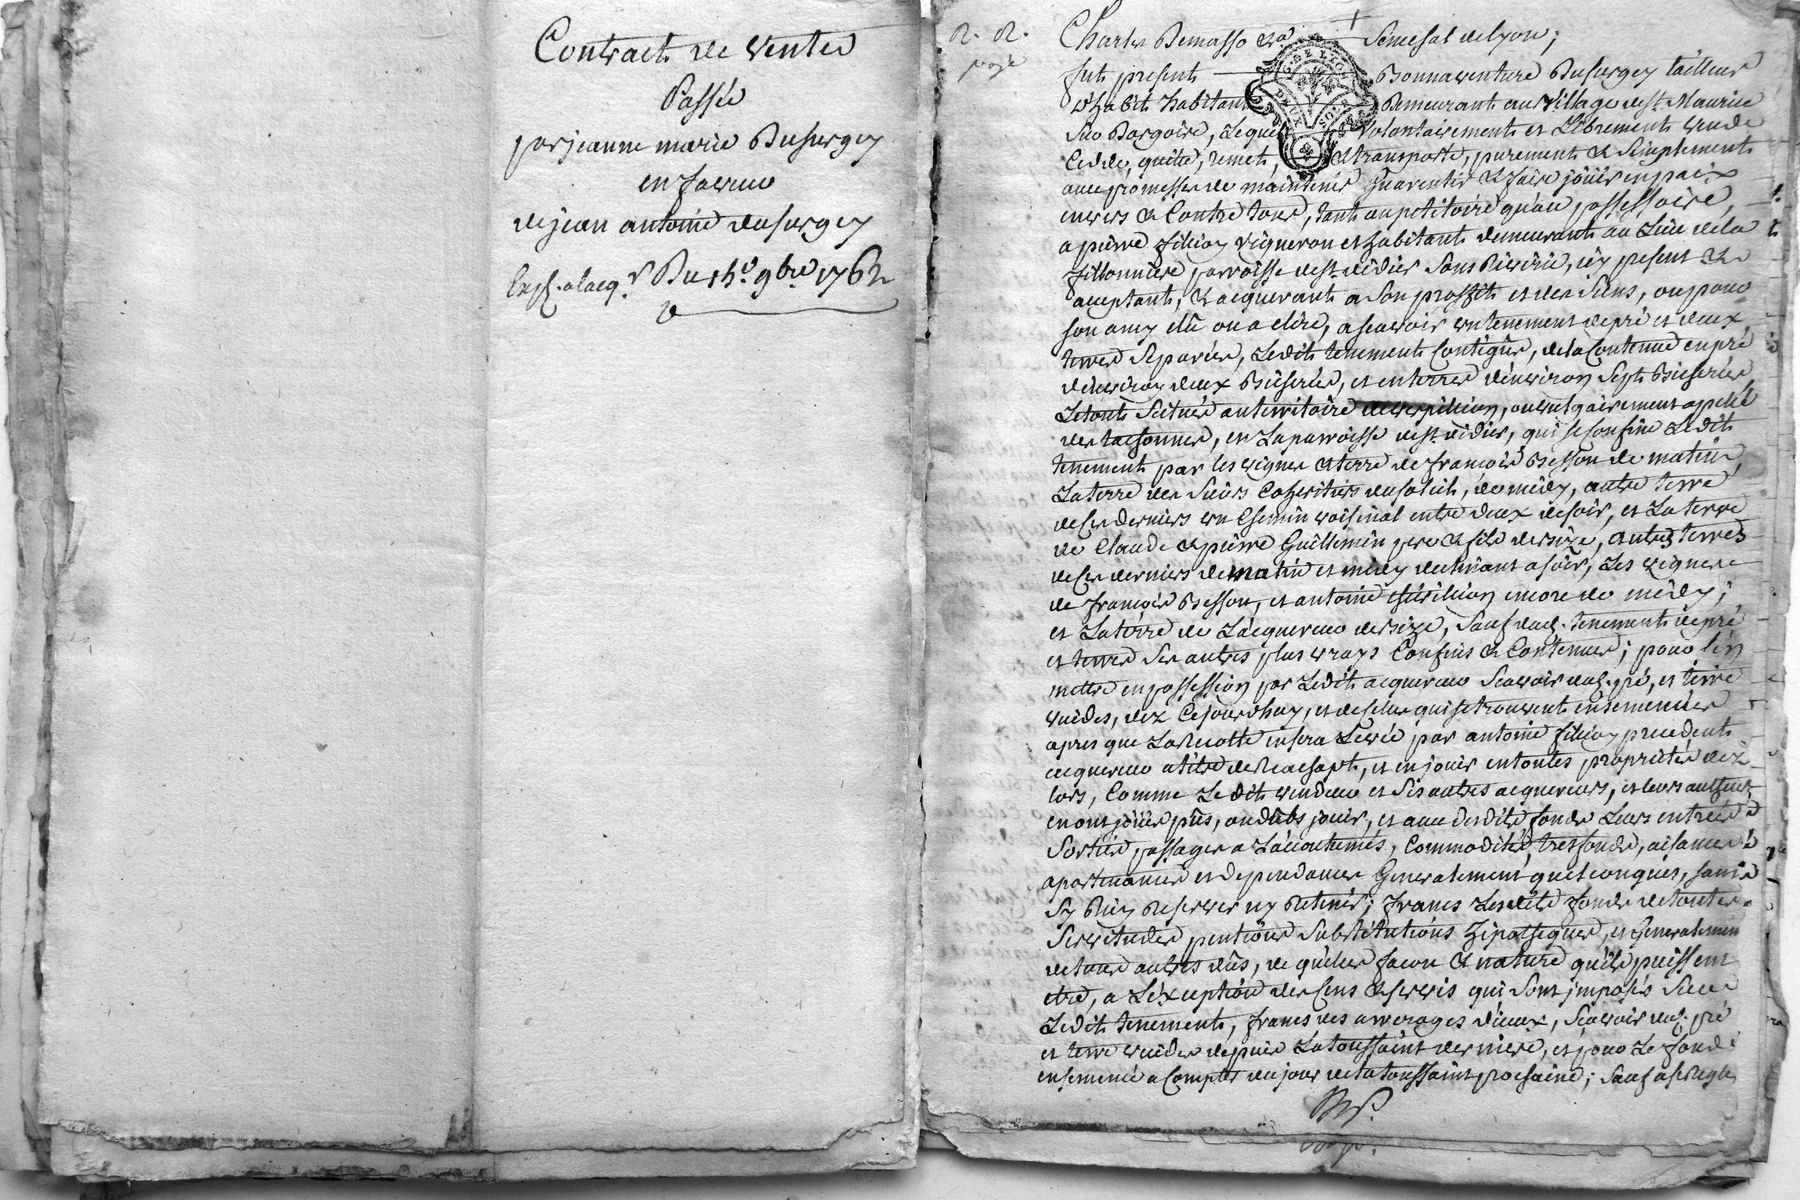 Contract de vente
Passée
par jeanne marie Dusurgey
en faveur
de jean antoine dusurgey
Exp. a lacq.r Du 15e. 9bre 1762
Charles Demasso &a Senechal de lyon;
fut present Bonnaventure Dusurgey tailleur
d'habit habitant Demeurant au village de st. Maurice
Sur Dargoire, Lequel volontairement et Librement vend
Cedde, quitte, remet, & transporte, purement & Simplement
avec promesse de maintenir Guarentir & faire jöüir en paix
envers & Contre tous, tant au petitoire qu'au possessoire,
a pierre filion vigneron et habitant demeurant au Lieu de la
fillonniere parroisse de st. didier Sous Riverie, icy present &
acceptant, & acquerant a Son proffit et des Siens, ou pour
son amy elû ou a elire, a scavoir un tenement de pré et deux
terres Separées, Ledit tenement Contigus, de la Contenue en pré
d'environ deux Bicherées, et en terres d'environ Sept Bicherées
Le tout Scitué au territoire de, ou vulgairement apellé
des, en La parroisse de st. didier, qui se confine Ledit
tenement par les vignes & terre de françois Besson de matin,
La terre des Sieurs Coheritiers, de midy, autre terre
de ces derniers un Chemin voisinal entre deux de soir, et La terre
de Claude & pierre Guillemin pere & fils de bize, autres terres
de ces derniers de matin et midy declinant a soir, Les vignes
de françois Besson, et antoine encore de midy;
et La terre de L'acquereur de bize, Sauf dud. tenement de pré
et terres Ses autres plus vrays Confins & Contenues; pour s'en
mettre en possession par Ledit acquereur Scavoir dud. pré, et terre
vuides, dez Cejourdhuy, et de celes qui se trouvent ensemencées
apres que La recolte en sera Levée par antoine filion precedent
acquereur a titre de Reachapt, et en jouir en toutes proprietés dez
lors, Comme Le dit vendeur et Ses autres acquereurs, et leurs autheurs
en ont jöüis pûs, ou dûbs jouir, et avec desdits fonds Leurs entrées
Sorties passages a L'accoutumés, Commodités, tresfonds, aisances
apartenances et dependances Generalement quelconques, sans
Sy Rien Reserver ny Retenir; francs Lesdits fonds de toutes
Servitudes pentions Substitutions hipotheques, et Generalement
de tous autres dûs, de quelque facon & nature qu'ils puissent
etre, a L'exception des Cens & servis qui Sont imposés Sur
Ledit tenement, francs des arrerages d'iceux, Scavoir dud. pré
et terre vuides depuis La toussaint derniere, et pour Le fond
ensemencé a Compter du jour de la toussaint prochaine; Sauf a se Regler